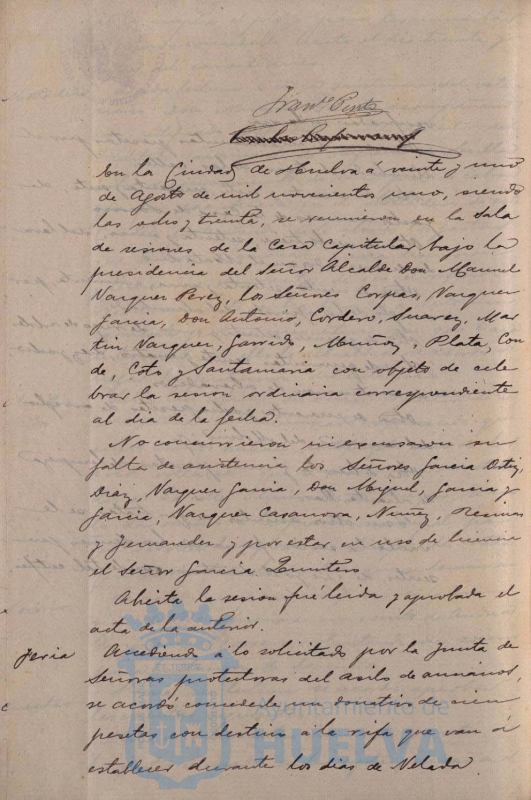 Franco Pinto
En la Ciudad de Huelva á veinte y uno
de Agosto de mil novecientos uno, siendo
las ocho y treinta, se reunieron en la Sala
de sesiones de la Casa Capitular bajo la
presidencia del Señor Alcalde Don Manuel
Vazquez Perez, los Señores Corpas, Vazquez
Garcia, Don Antonio, Cordero, Suarez, Mar
tin Vazquez, Garrido, Muñoz, Plata, Con
de, Coto y Santamaria con objeto de cele
brar la sesion ordinaria correspondiente
al dia de la fecha.
No concurrieron ni excusaron su
falta de asistencia los Señores Garcia Ortiz,
Diaz, Vazquez Garcia, Don Miguel, Garcia y
Garcia, Vazquez Casanova, Nuñez,
y Fernandez y por estar en uso de licencia
el Señor Garcia Quintero
Abierta la sesion fué leida y aprobada el
acta de la anterior.
Feria
Accediendo á lo solicitado por la Junta de
Señoras protectoras del asilo de ancianos,
se acordó concederle un donativo de cien
pesetas con destino á la rifa que van á
establecer durante los dias de Velada.
Ayuntamiento de
HUELVA